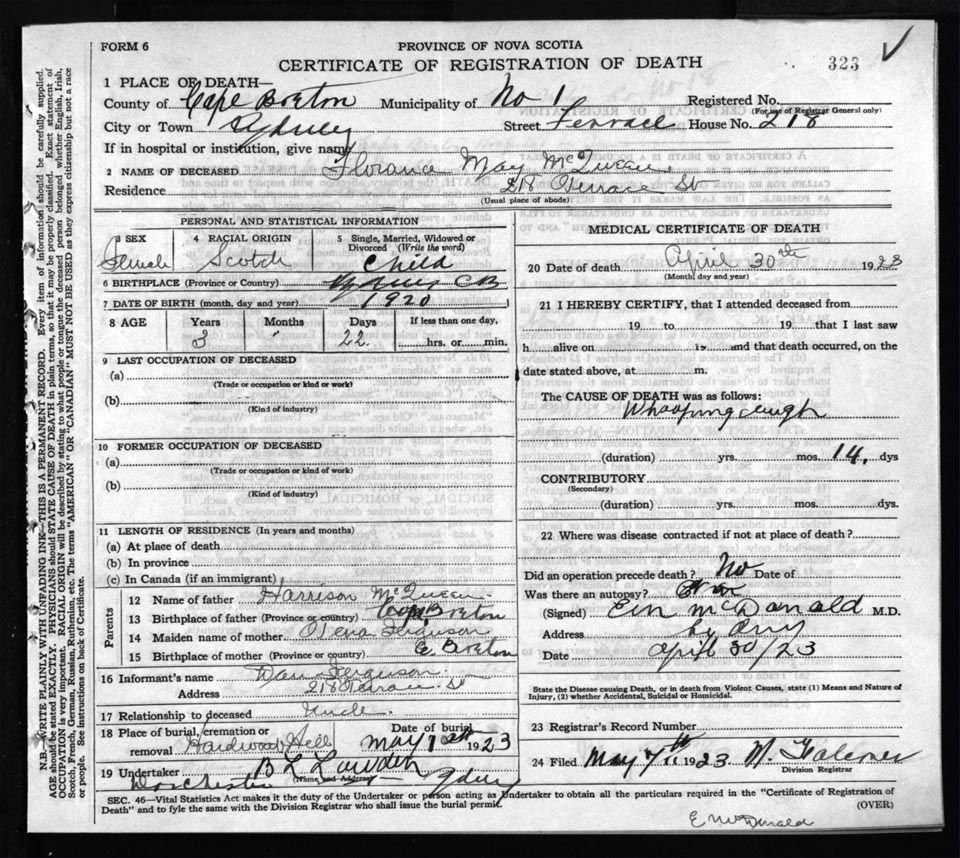 FORM 6
PROVINCE OF NOVA SCOTIA
CERTIFICATE OF REGISTRATION OF DEATH
323
1 PLACE OF DEATH—
County of Cape Breton Municipality of No 1 Registered No.
(For use of Registrar General only)
City or Town Sydney Street Terrace House No. 218
If in hospital or institution, give name
2 NAME OF DECEASED May McQueen
Residence 218 Terrace St
(Usual place of abode)
PERSONAL AND STATISTICAL INFORMATION
3 SEX Female
4 RACIAL ORIGIN Scotch
5 Single, Married, Widowed or Divorced (Write the word) Child
6 BIRTHPLACE (Province or Country) CB
7 DATE OF BIRTH (month, day and year) 1920
8 AGE Years Months Days If less than one day,
3 " 22 hrs. or min.
9 LAST OCCUPATION OF DECEASED
(a)
(Trade or occupation or kind or work)
(b)
(Kind of industry)
10 FORMER OCCUPATION OF DECEASED
(a)
(Trade or occupation or kind of work)
(b)
(Kind of industry)
11 LENGTH OF RESIDENCE (In years and months)
(a) At place of death
(b) In province
(c) In Canada (if an immigrant)
Parents
12 Name of father Harrison McQueen
13 Birthplace of father (Province or country) Cape Breton
14 Maiden name of mother Ferguson
15 Birthplace of mother (Province or country) Breton
16 Informant's name Dan Ferguson
Address 218 Terrace St
17 Relationship to deceased Uncle
18 Place of burial, cremation or removal Hardwood Hill
Date of burial May 1st 1923
19 Undertaker B L Lowden
(Name and Address)
Dorchester Sydney
MEDICAL CERTIFICATE OF DEATH
20 Date of death April 30th 1923
(Month, day and year)
21 I HEREBY CERTIFY, that I attended deceased from
19 to 19 that I last saw
h alive on 19 and that death occurred, on the
date stated above, at m.
The CAUSE OF DEATH was as follows:
Whooping cough
(duration) yrs. mos. 14, dys
CONTRIBUTORY
(Secondary)
(duration) yrs. mos. dys
22 Where was disease contracted if not at place of death?
Did an operation precede death? No Date of
Was there an autopsy?
(Signed) McDonald M.D.
Address
Date April 30/23
State the Disease causing Death, or in death from Violent Causes, state (1) Means and Nature of Injury, (2) whether Accidental, Suicidal or Homicidal.
23 Registrar's Record Number
24 Filed May 7th 1923
Division Registrar
SEC. 46—Vital Statistics Act makes it the duty of the Undertaker or person acting as Undertaker to obtain all the particulars required in the "Certificate of Registration of
Death" and to fyle the same with the Division Registrar who shall issue the burial permit.
(OVER)
E McDonald
N.B.—WRITE PLAINLY WITH UNFADING INK—THIS IS A PERMANENT RECORD. Every item of information should be carefully supplied.
AGE should be stated EXACTLY. PHYSICIANS should STATE CAUSE OF DEATH in plain terms, so that it may be properly classified. Exact statement of
OCCUPATION is very important. RACIAL ORIGIN will be described by stating to what people or tongue the deceased person belonged whether English, Irish,
Scotch, French, German, Russian, Ruthenian, etc. The terms "AMERICAN" OR "CANADIAN" MUST NOT BE USED as they express citizenship but not a race
or people. See instructions on back of Certificate.